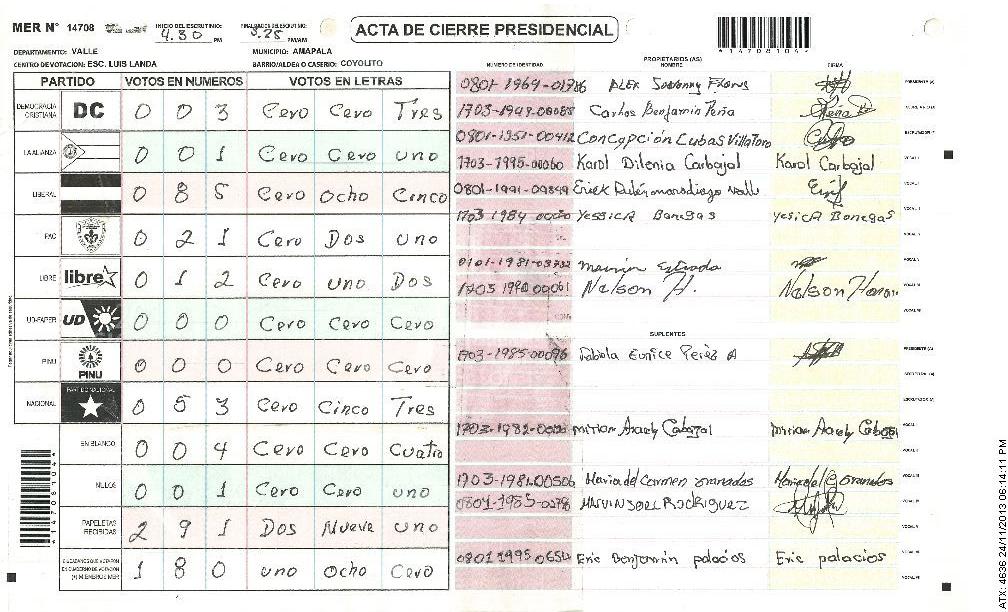 MER N° 14708
INICIO DEL ESCRUTINIO: 4.30 PM
5.25 PM/AM
ACTA DE CIERRE PRESIDENCIAL
*14708104*
DEPARTAMENTO: VALLE
MUNICIPIO: AMAPALA
CENTRO DE VOTACION: ESC. LUIS LANDA
BARRIO/ALDEA O CASERIO: COYOLITO
PARTIDO VOTOS EN NUMEROS VOTOS EN LETRAS
DEMOCRACIA CRISTIANA DC 0 0 3 Cero Cero Tres
LA ALIANZA 0 0 1 Cero Cero uno
LIBERAL 0 8 5 Cero Ocho Cinco
PAC 0 2 1 Cero Dos uno
LIBRE libre 0 1 2 Cero uno Dos
UD-FAPER UD 0 0 0 Cero Cero Cero
PINU PINU 0 0 0 Cero Cero Cero
NACIONAL PARTIDO NACIONAL 0 5 3 Cero Cinco Tres
EN BLANCO 0 0 4 Cero Cero Cuatro
NULOS 0 0 1 Cero Cero uno
PAPELETAS RECIBIDAS 2 9 1 Dos Nueve uno
CIUDADANOS QUE VOTARON 1 8 0 uno Ocho Cero
*14708104*
PROPIETARIOS (AS)
NUMERO DE IDENTIDAD NOMBRE FIRMA
0801-1969-01786 PRESIDENTE (A)
1703-1949-00088 Carlos Benjamin Peña
0801-1951-00412 Concepción Lubas Villatoro
1703-1995-00060 Karol Dilenia Carbajal Karol Carbajal VOCAL I
0801-1991-00849 Erick
1703 1984 Yessica Banegas Yesica Banegas
0101-1981-03732 Estrada
1703 1990 00061 Nelson H. Nelson
SUPLENTES
1703-1985-00096 Fabiola Eunice Perez A PRESIDENTE (A)
1703-1982 Miriam Aracely Carbajal
1703-1981-00506 Maria del Carmen Granados Maria del C Granados
0801-1985 Marvin Joel Rodriguez
0801 1995 0654 Eric Benjamin palacios Eric palacios
ATX: 4636 24/11/2013 06:14:11 PM